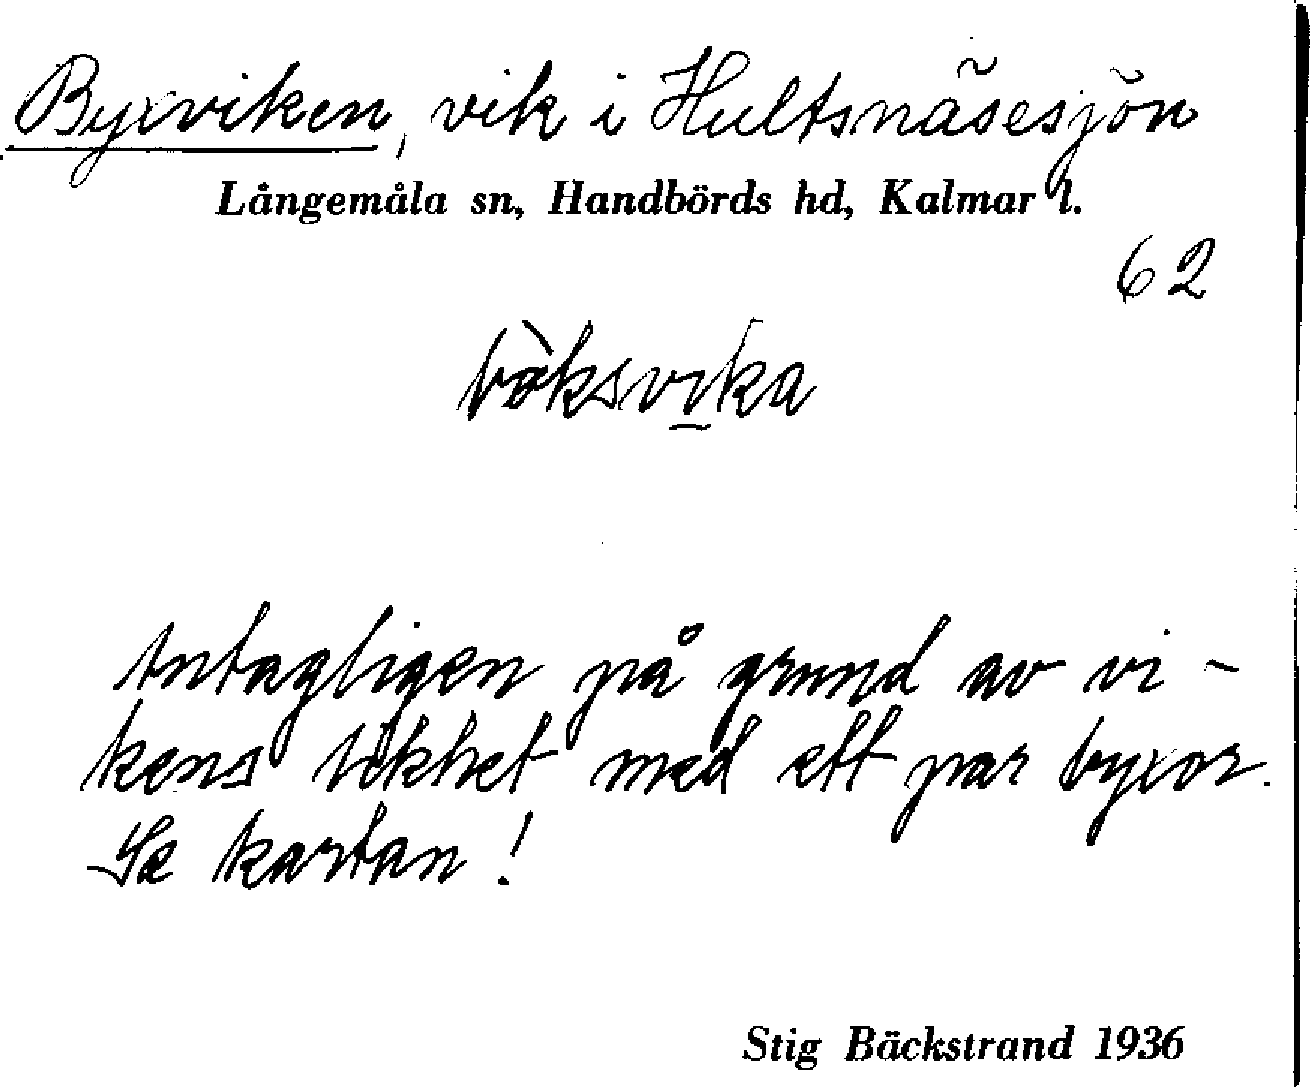 Byxviken, vik i Hultsnäsesjön
Långemåla sn, Handbörds hd, Kalmar l.
62
bòksvıka
Antagligen på grund av vi-
kens likhet med ett par byxor.
Se kartan!
Stig Bäckstrand 1936